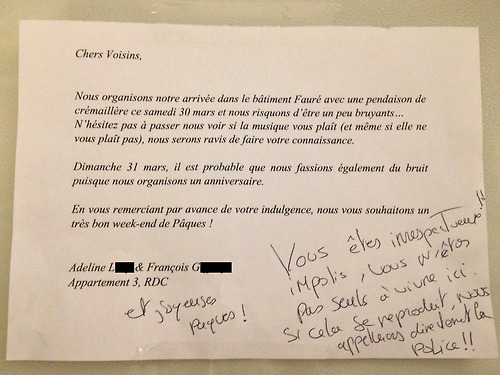 Chers Voisins,
Nous organisons notre arrivée dans le bâtiment Fauré avec une pendaison de
crémaillère ce samedi 30 mars et nous risquons d'être un peu bruyants…
N'hésitez pas à passer nous voir si la musique vous plaît (et même si elle ne
vous plaît pas), nous serons ravis de faire votre connaissance.
Dimanche 31 mars, il est probable que nous fassions également du bruit
puisque nous organisons un anniversaire.
En vous remerciant par avance de votre indulgence, nous vous souhaitons un
très bon week-end de Pâques !
Adeline L & François G
Appartement 3, RDC
et joyeuses
Paques !
Vous êtes irrespectueux !!
impolis, vous n'êtes
pas seuls à vivre ici.
si cela se reproduit, nous
appellerons directement la
Police !!